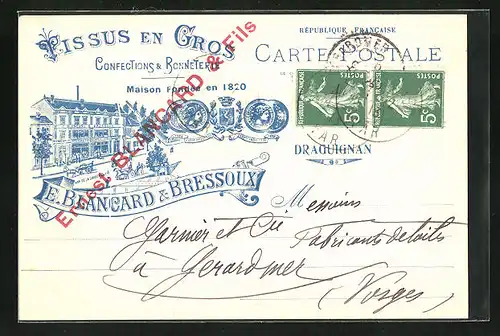 TISSUS EN GROS
CONFECTIONS & BONNETERIE
Maison Fondée en 1820
Ernest BLANCARD & Fils
E. BLANCARD & BRESSOUX
RÉPUBLIQUE FRANÇAISE
CARTE POSTALE
REPUBLIQUE FRANÇAISE
POSTES
5c
REPUBLIQUE FRANÇAISE
POSTES
5c
VAR
DRAGUIGNAN
Messieurs
Garnier et Cie
Fabricants de toiles
à Gerardmer
(Vosges)